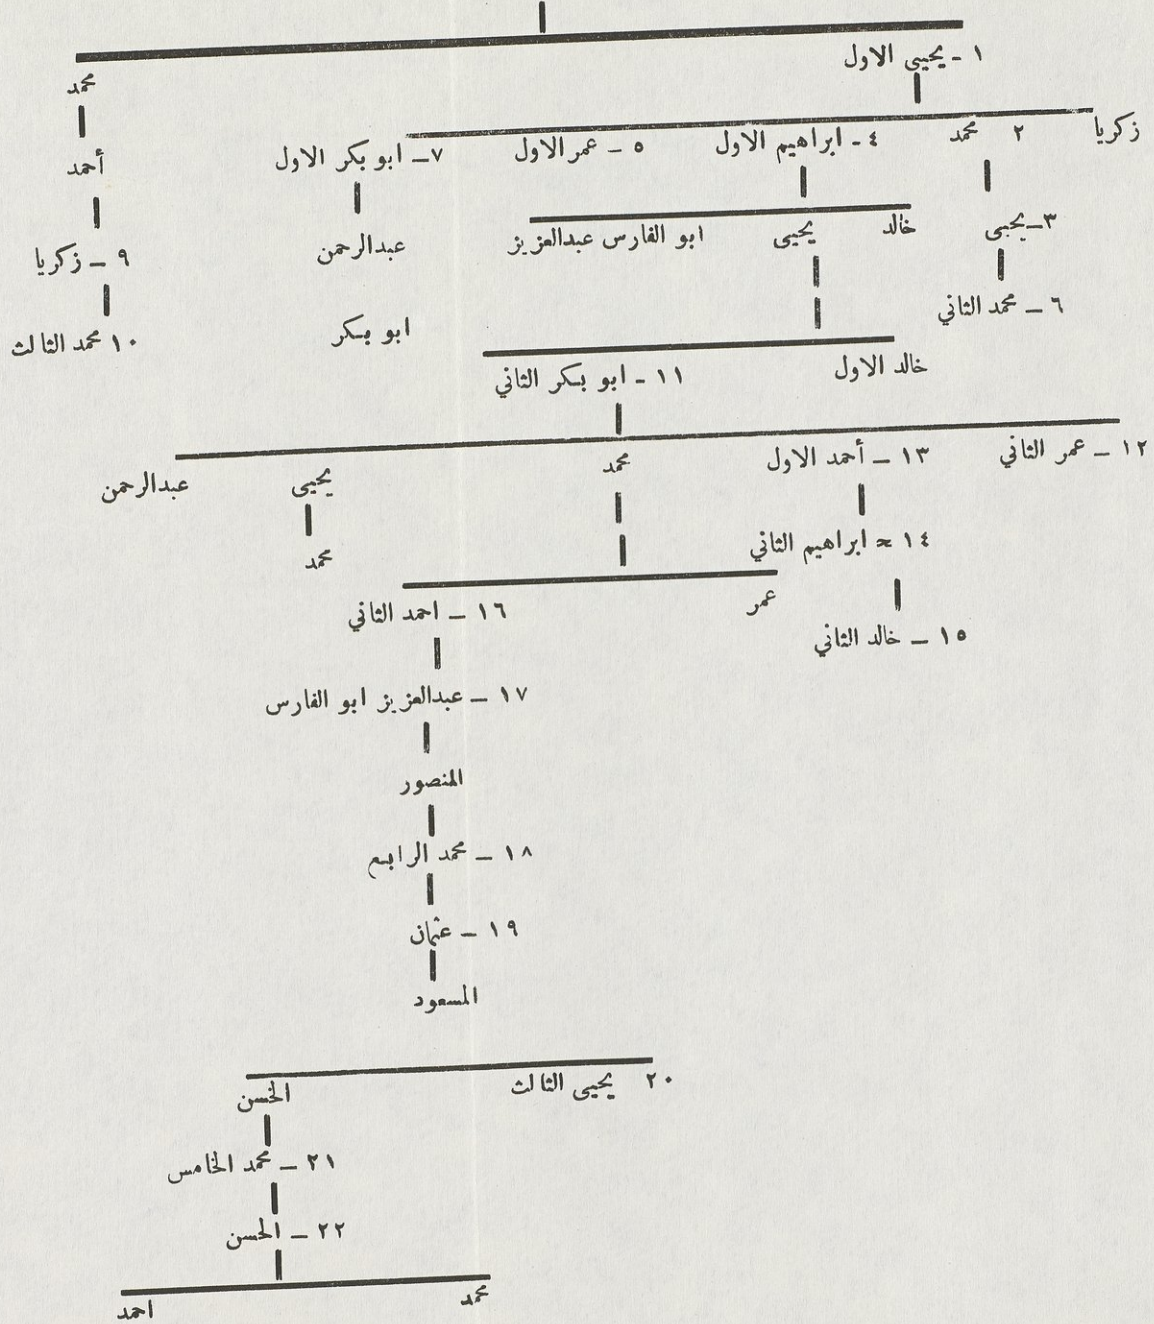 ١ - يحيى الاول
محمد
زكريا
٢ محمد
٤ - ابراهيم الاول
٥ - عمر الاول
٧ - ابو بكر الاول
أحمد
٣ - يحيى
خالد
يحيى
ابو الفارس عبدالعزيز
عبدالرحمن
٩ - زكريا
٦ - محمد الثاني
ابو بكر
١٠ محمد الثالث
خالد الاول
١١ - ابو بكر الثاني
١٢ - عمر الثاني
١٣ - أحمد الاول
محمد
يحيى
عبدالرحمن
١٤ = ابراهيم الثاني
محمد
عمر
١٦ - احمد الثاني
١٥ - خالد الثاني
١٧ - عبدالعزيز ابو الفارس
المنصور
١٨ - محمد الرابع
١٩ - عثمان
المسعود
٢٠ يحيى الثالث
الخسن
٢١ - محمد الخامس
٢٢ - الحسن
محمد
احمد